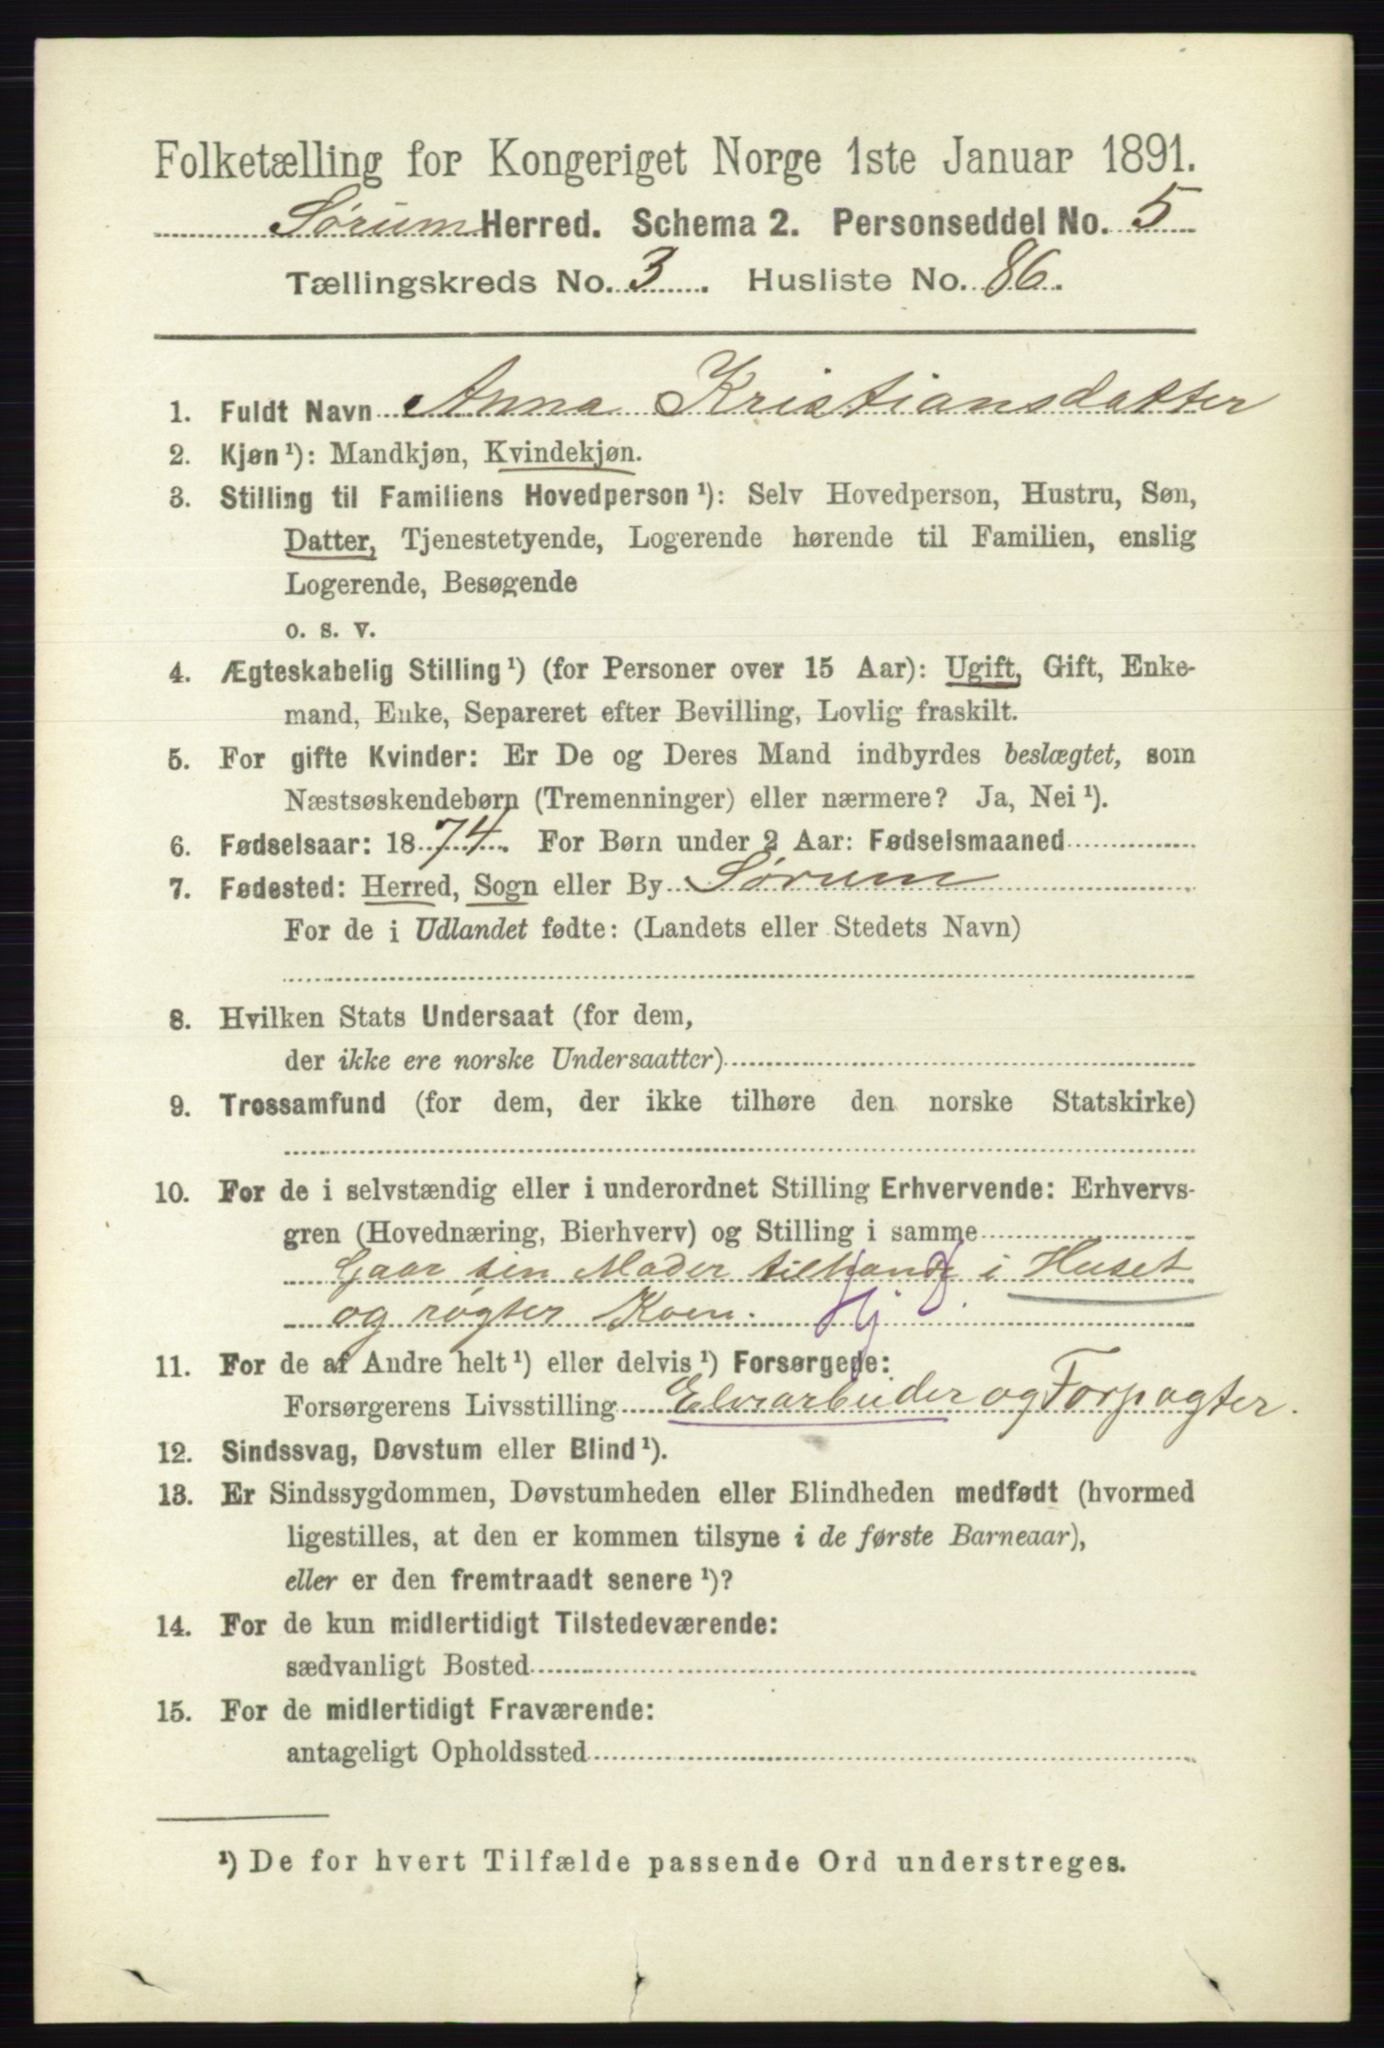 Folketælling for Kongeriget Norge 1ste Januar 1891.
Sørum Herred. Schema 2. Personseddel No. 5
Tællingskreds No. 3. Husliste No. 86.
1. Fuldt Navn Anna Kristiansdatter
2. Kjøn ¹): Mandkjøn, Kvindekjøn.
3. Stilling til Familiens Hovedperson ¹): Selv Hovedperson, Hustru, Søn,
Datter, Tjenestetyende, Logerende hørende til Familien, enslig
Logerende, Besøgende
o. s. v.
4. Ægteskabelig Stilling ¹) (for Personer over 15 Aar): Ugift, Gift, Enke-
mand, Enke, Separeret efter Bevilling, Lovlig fraskilt.
5. For gifte Kvinder: Er De og Deres Mand indbyrdes beslægtet, som
Næstsøskendebørn (Tremenninger) eller nærmere? Ja, Nei ¹).
6. Fødselsaar: 1874. For Børn under 2 Aar: Fødselsmaaned
7. Fødested: Herred, Sogn eller By Sørum
For de i Udlandet fødte: (Landets eller Stedets Navn)
8. Hvilken Stats Undersaat (for dem,
der ikke ere norske Undersaatter)
9. Trossamfund (for dem, der ikke tilhøre den norske Statskirke)
10. For de i selvstændig eller i underordnet Stilling Erhvervende: Erhvervs-
gren (Hovednæring, Bierhverv) og Stilling i samme
Gaar sin Moder tilhande i Huset
og røgter Koen.
11. For de af Andre helt ¹) eller delvis ¹) Forsørgede:
Forsørgerens Livsstilling Elvearbeider og Forpagter.
12. Sindssvag, Døvstum eller Blind ¹).
13. Er Sindssygdommen, Døvstumheden eller Blindheden medfødt (hvormed
ligestilles, at den er kommen tilsyne i de første Barneaar),
eller er den fremtraadt senere ¹)?
14. For de kun midlertidigt Tilstedeværende:
sædvanligt Bosted
15. For de midlertidigt Fraværende:
antageligt Opholdssted
¹) De for hvert Tilfælde passende Ord understreges.